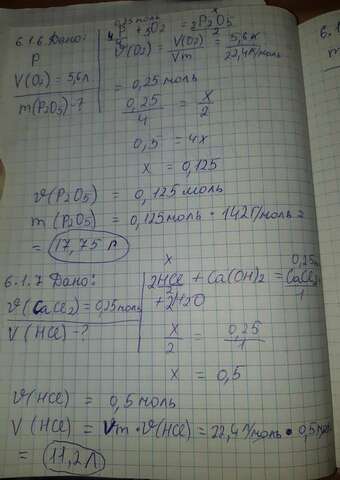 6.1.6 Дано:
P
V(O₂) = 5,6л
m(P₂O₅)-?
0,25 моль x
4P + 5O₂ = 2P₂O₅
ν(O₂) = V(O₂)/Vm = 5,6л/22,4л/моль
= 0,25 моль
0,25/4 = x/2
0,5 = 4x
x = 0,125
ν(P₂O₅) = 0,125 моль
m (P₂O₅) = 0,125моль · 142г/моль =
= 17,75 г
6.1.7 Дано:
ν(CaCl₂) = 0,25моль
V (HCl) - ?
x 0,25
2HCl + Ca(OH)₂ = CaCl₂
+ 2H₂O
x/2 = 0,25/1
x = 0,5
ν(HCl) = 0,5 моль
V (HCl) = Vm · ν(HCl) = 22,4 л/моль · 0,5 моль
= 11,2 л
6.1
m